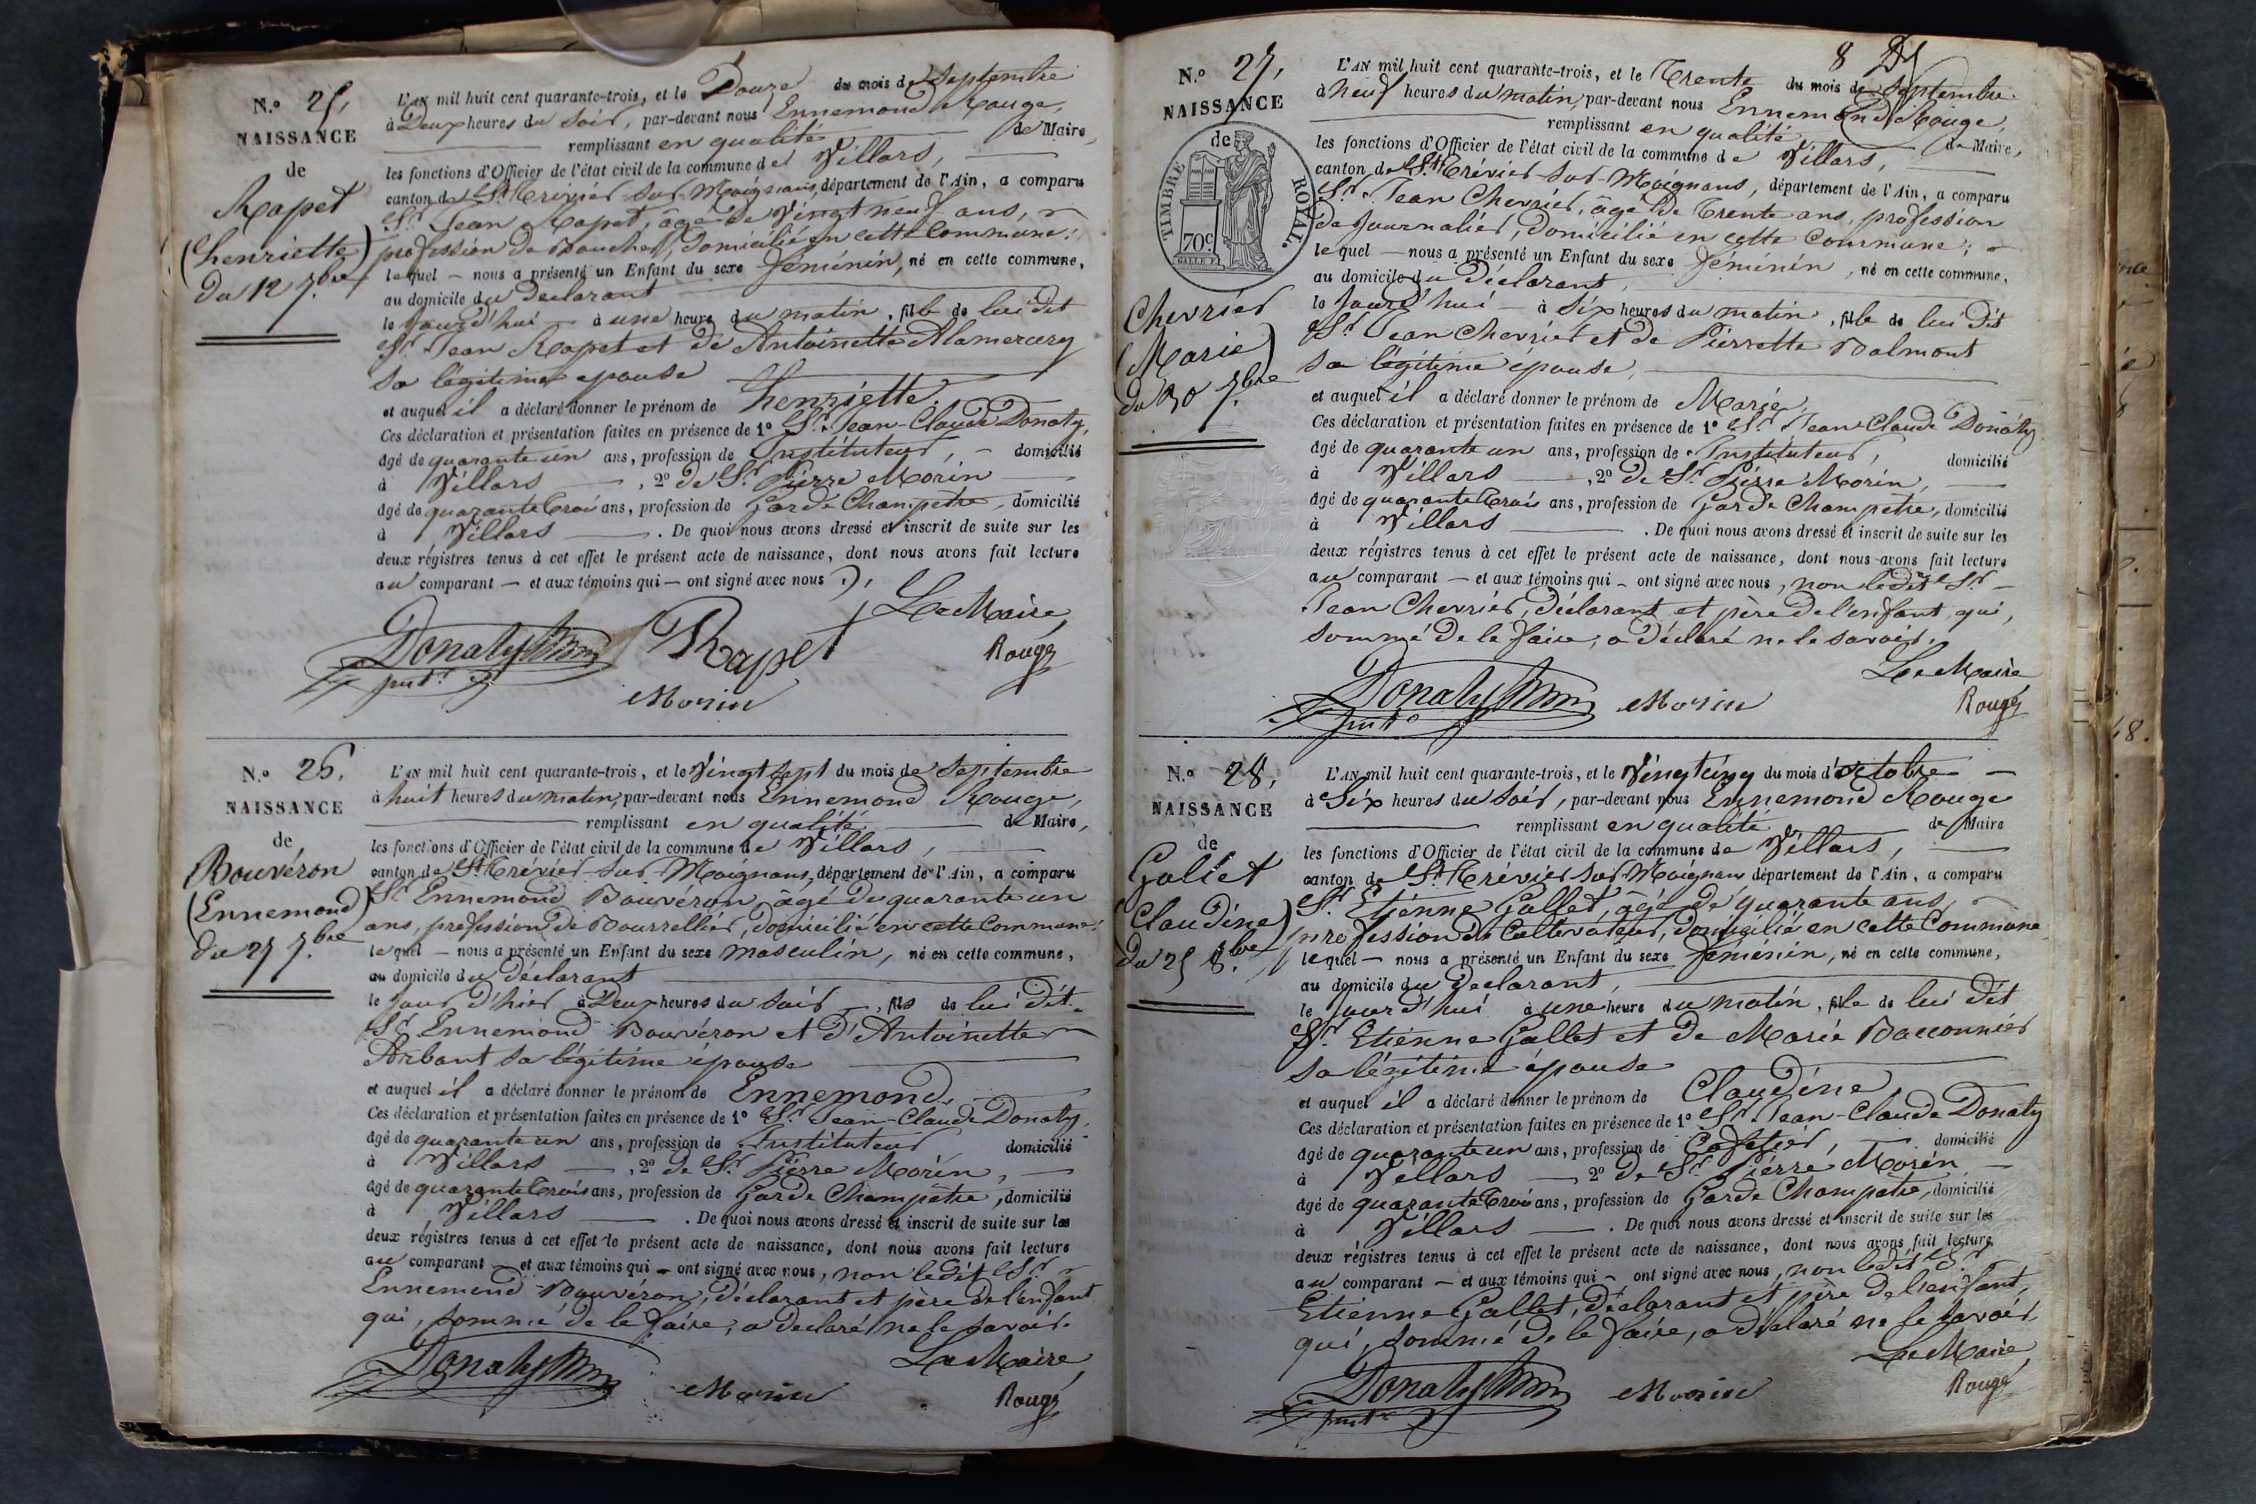 N.º 25,
NAISSANCE
de
Rapet
(henriette)
du 12 7.bre
L'AN mil huit cent quarante-trois, et le Douze du mois de Septembre
à Deux heures du Soir, par-devant nous Ennemond Rouge,
remplissant en qualité de Maire,
les fonctions d'Officier de l'état civil de la commune de Villars,
canton de St Trévier sur Moignans, département de l'Ain, a comparu
Sr. Jean Rapet, âgé de Vingt neuf ans,
profession de Boucher, domicilié en cette Commune;
lequel — nous a présenté un Enfant du sexe féminin, né en cette commune,
au domicile du Déclarant
le Jourd'hui à une heure du matin, fille de lui dit
Sr. Jean Rapet et de Antoinette Alamercery
sa légitime epouse
et auquel il a déclaré donner le prénom de henriette.
Ces déclaration et présentation faites en présence de 1º Sr. Jean-Claude Donaty,
âgé de quarante un ans, profession de Instituteur, — domicilié
à Villars —, 2º de Sr. Pierre Morin
âgé de quarante trois ans, profession de Garde Champêtre, domicilié
à Villars —. De quoi nous avons dressé et inscrit de suite sur les
deux régistres tenus à cet effet le présent acte de naissance, dont nous avons fait lecture
au comparant — et aux témoins qui — ont signé avec nous.
Le Maire,
Donaty Rapet Rougé
Morin
N.º 26.
NAISSANCE
de
Bouvéron
(Ennemond)
du 27 7.bre
L'AN mil huit cent quarante-trois, et le Vingt sept du mois de Septembre
à huit heures du matin, par-devant nous Ennemond Rouge,
remplissant en qualité de Maire,
les fonctions d'Officier de l'état civil de la commune de Villars,
canton de St Trévier sur Moignans, département de l'Ain, a comparu
Sr. Ennemond Bouvéron, âgé de quarante un
ans, profession de Bourrellier, domicilié en cette Commune;
lequel — nous a présenté un Enfant du sexe masculin, né en cette commune,
au domicile du déclarant
le jour d'hier à Deux heures du soir —, fils de lui dit
Sr. Ennemond Bouvéron et d'Antoinette
Arbant sa légitime épouse
et auquel il a déclaré donner le prénom de Ennemond.
Ces déclaration et présentation faites en présence de 1º Sr. Jean-Claude Donaty,
âgé de quarante un ans, profession de Instituteur domicilié
à Villars —, 2º de Sr. Pierre Morin,
âgé de quarante trois ans, profession de Garde Champêtre, domicilié
à Villars —. De quoi nous avons dressé et inscrit de suite sur les
deux régistres tenus à cet effet le présent acte de naissance, dont nous avons fait lecture
au comparant — et aux témoins qui — ont signé avec nous, non ledit Sr.
Ennemond Bouvéron, Déclarant et père de l'enfant
qui, sommé de le faire, a déclaré ne le savoir.
Le Maire,
Donaty Morin Rougé
8
N.º 27,
NAISSANCE
de
TIMBRE ROYAL.
70c.
Chevrier
(Marie)
du 30 7.bre
L'AN mil huit cent quarante-trois, et le Trente du mois de Septembre
à neuf heures du matin, par-devant nous Ennemond Rouge,
remplissant en qualité de Maire,
les fonctions d'Officier de l'état civil de la commune de Villars,
canton de St Trévier sur Moignans, département de l'Ain, a comparu
Sr. Jean Chevrier, âgé de Trente ans, profession
de Journalier, domicilié en cette Commune;
lequel — nous a présenté un Enfant du sexe féminin, né en cette commune,
au domicile du Déclarant,
le Jourd'hui — à six heures du matin, fille de lui dit
Sr. Jean Chevrier et de Pierrette Balmont
sa légitime épouse,
et auquel il a déclaré donner le prénom de Marie,
Ces déclaration et présentation faites en présence de 1º Sr. Jean-Claude Donaty
âgé de quarante un ans, profession de Instituteur, domicilié
à Villars —, 2º de Sr. Pierre Morin,
âgé de quarante trois ans, profession de Garde Champêtre, domicilié
à Villars —. De quoi nous avons dressé et inscrit de suite sur les
deux régistres tenus à cet effet le présent acte de naissance, dont nous avons fait lecture
au comparant — et aux témoins qui — ont signé avec nous, non ledit Sr.
Jean Chevrier, Déclarant et père de l'enfant, qui,
sommé de le faire, a déclaré ne le savoir.
Le Maire
Donaty Morin Rougé
N.º 28,
NAISSANCE
de
Gallet
(Claudine)
du 25 8.bre
L'AN mil huit cent quarante-trois, et le Vingt cinq du mois d'octobre —
à Six heures du Soir, par-devant nous Ennemond Rouge
remplissant en qualité de Maire
les fonctions d'Officier de l'état civil de la commune de Villars,
canton de St Trévier sur Moignans département de l'Ain, a comparu
Sr. Etienne Gallet, âgé de quarante ans,
profession de Cultivateur, domicilié en cette Commune
lequel — nous a présenté un Enfant du sexe féminin, né en cette commune,
au domicile du Déclarant,
le Jourd'hui à une heure du matin, fille de lui dit
Sr. Etienne Gallet et de Marie Bacconnier
sa légitime épouse
et auquel il a déclaré donner le prénom de Claudine,
Ces déclaration et présentation faites en présence de 1º Sr. Jean-Claude Donaty
âgé de quarante un ans, profession de Cafetier, domicilié
à Villars — 2º de Sr. Pierre Morin
âgé de quarante trois ans, profession de Garde Champêtre, domicilié
à Villars —. De quoi nous avons dressé et inscrit de suite sur les
deux régistres tenus à cet effet le présent acte de naissance, dont nous avons fait lecture
au comparant — et aux témoins qui — ont signé avec nous, non ledit Sr.
Etienne Gallet, Déclarant et père de l'enfant,
qui, sommé de le faire, a déclaré ne le savoir.
Le Maire,
Donaty Morin Rougé